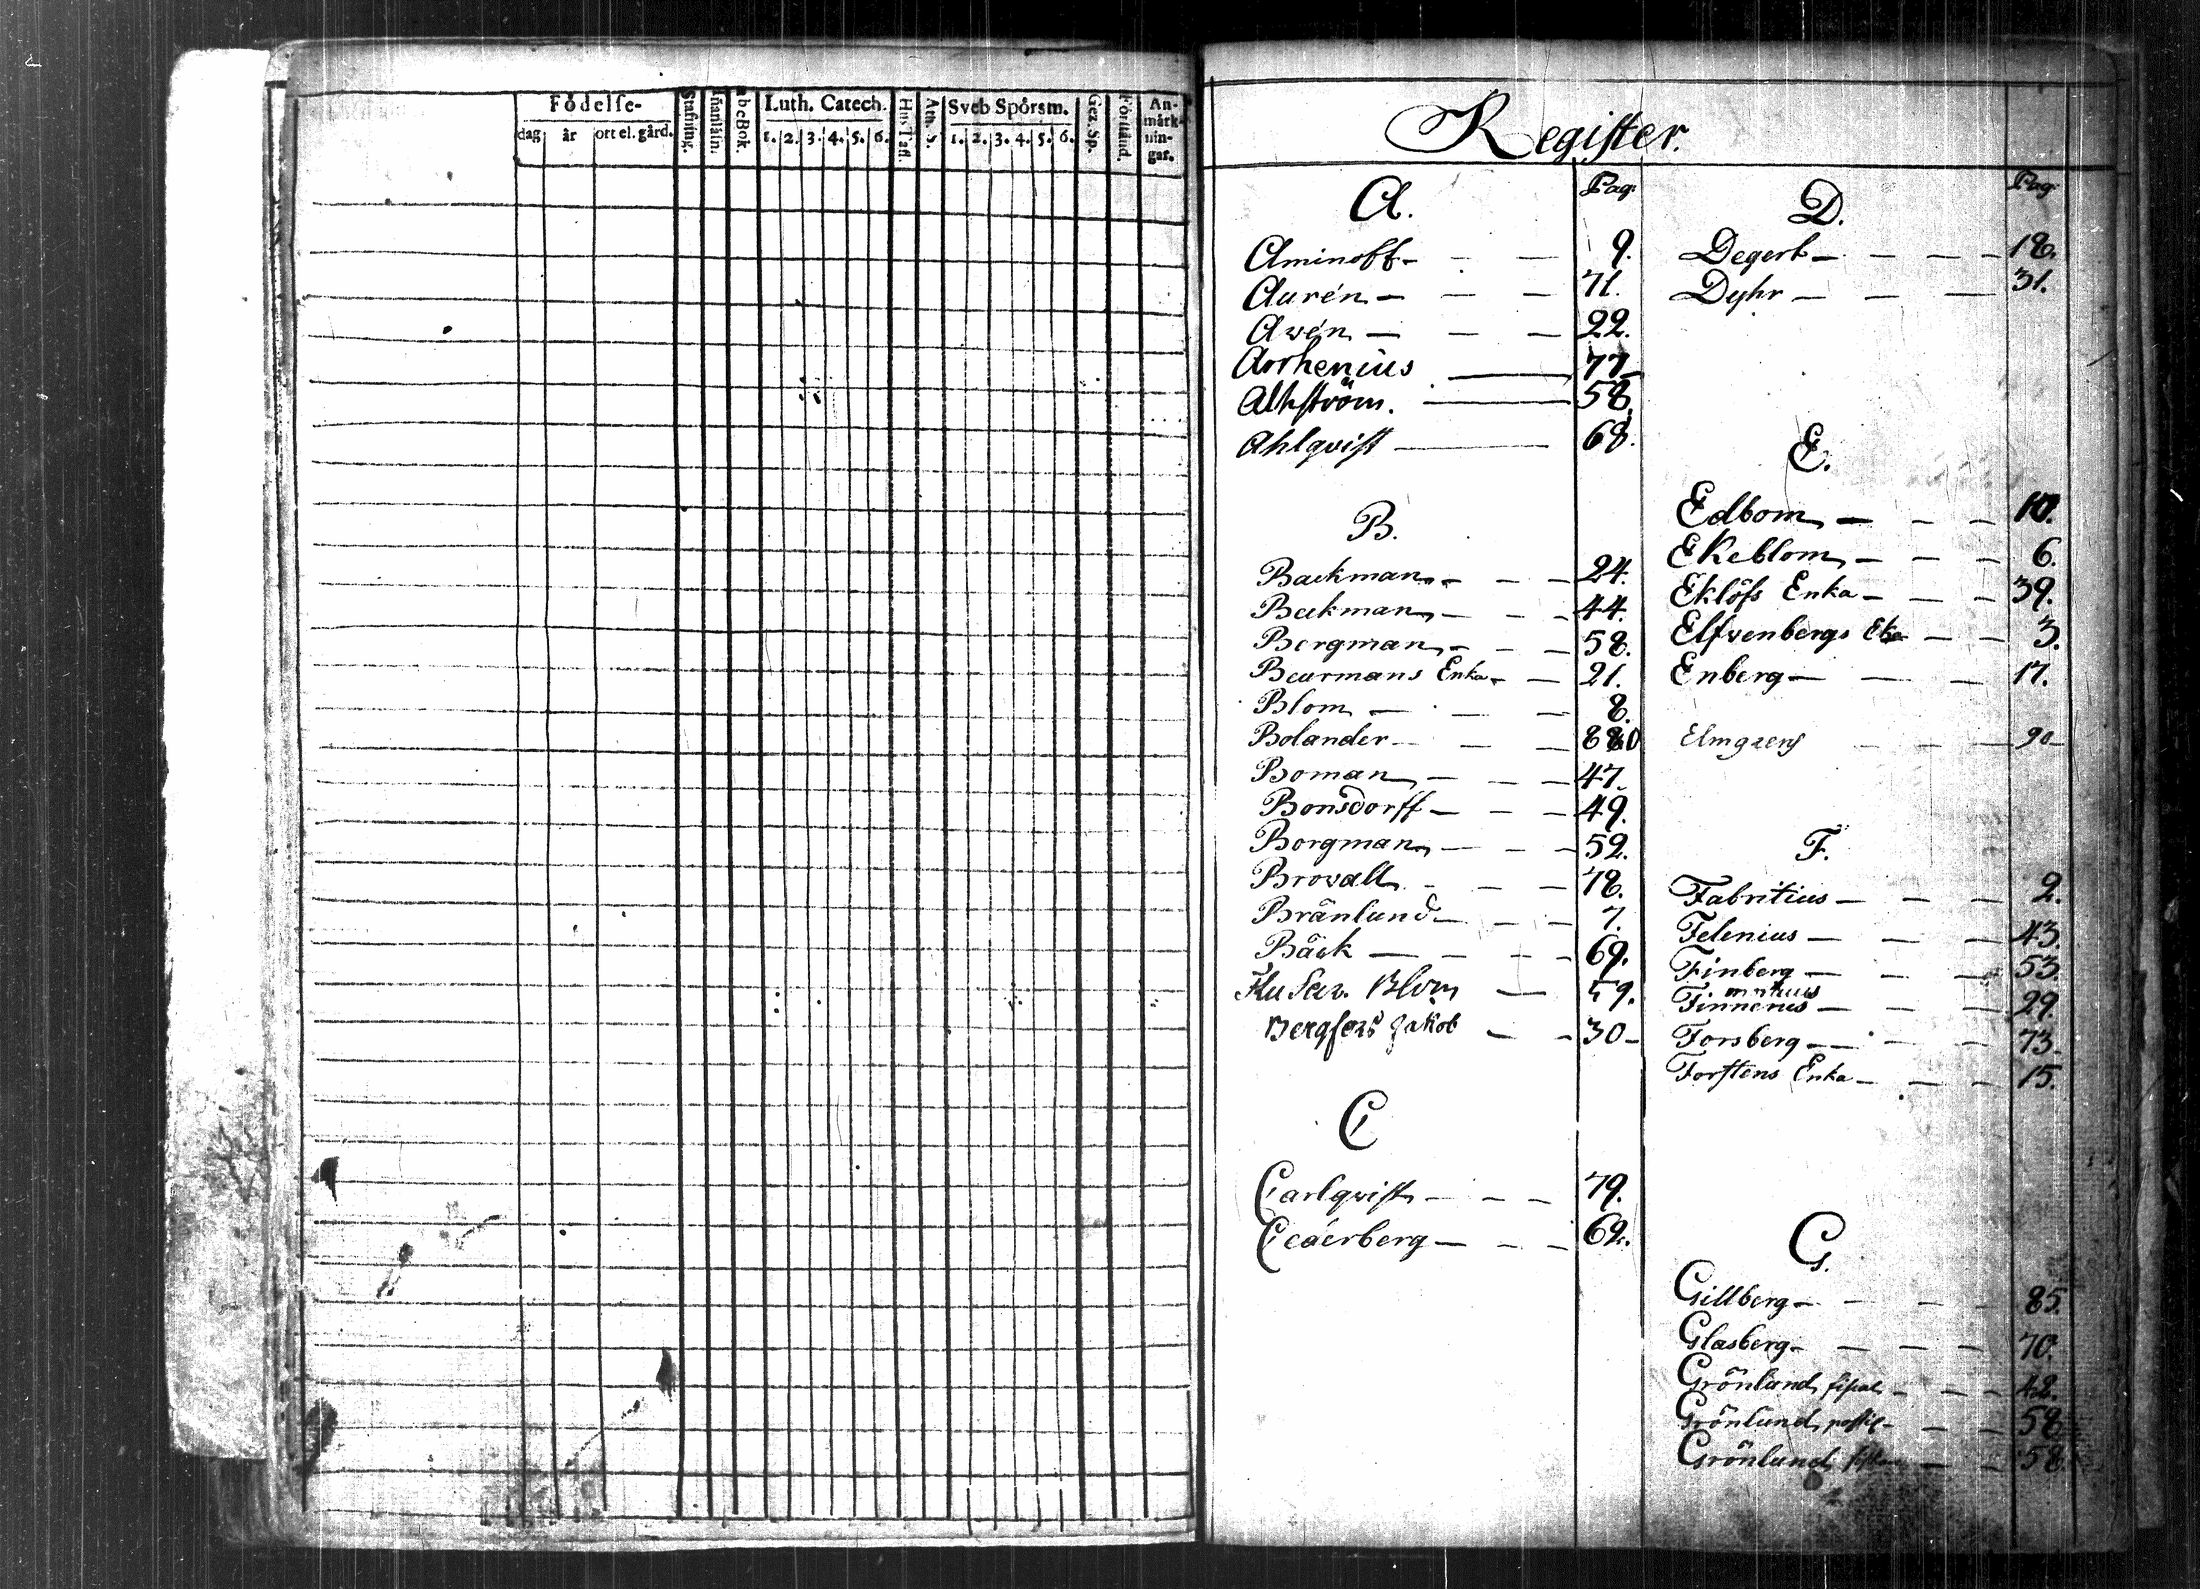 Födelse-
dag år ort el. gård.
Stafning.
abcBok.
Luth. Catech.
1. 2. 3. 4. 5. 6.
Hus Tafl.
Ath. S.
Sveb Spörsm.
1. 2. 3. 4. 5. 6.
Gez. Sp.
Förstånd.
An-
märk-
nin-
gar.
Register.
A. Pag:
Aminoff — — 9.
Aurén — — — 71.
Awén — — — 22.
Arrhenius — 77
Alhström. — 58.
Ahlqvist — 68.
B.
Backman — — — 24.
Beckman — — — 44.
Bergman — — — 58.
Beurmans Enka — — 21.
Blom — — — 8.
Bolander — — — 80
Boman — — — 47.
Bonsdorff — — — 49.
Borgman — — — 52.
Browall — — — 78.
Brånlund — — — 7.
Bäck — — — 69.
Blom — 59.
Bergfors Jakob — — 30 —
C
Carlqvist — — — 79.
Cederberg — — — 62.
D. Pag
Degert — — — — 18.
Dyhr — — — 31.
E.
Edbom — — — 10.
Ekeblom — — — 6.
Eklöfs Enka — — — 39.
Elfvenbergs Eka — — 3.
Enberg — — — 17.
Elmgrens — — — 90 —
F.
Fabritius — — — 2.
Felenius — — — 43.
Finberg — — — 53.
Finnerus — — — 29.
Forsberg — — — 73.
Forstens Enka — — — 15.
G.
Gillberg — — — — 85.
Glasberg — — — — 70.
Grönlund — — — 42.
Grönlund — — — 58.
Grönlund — — 58.